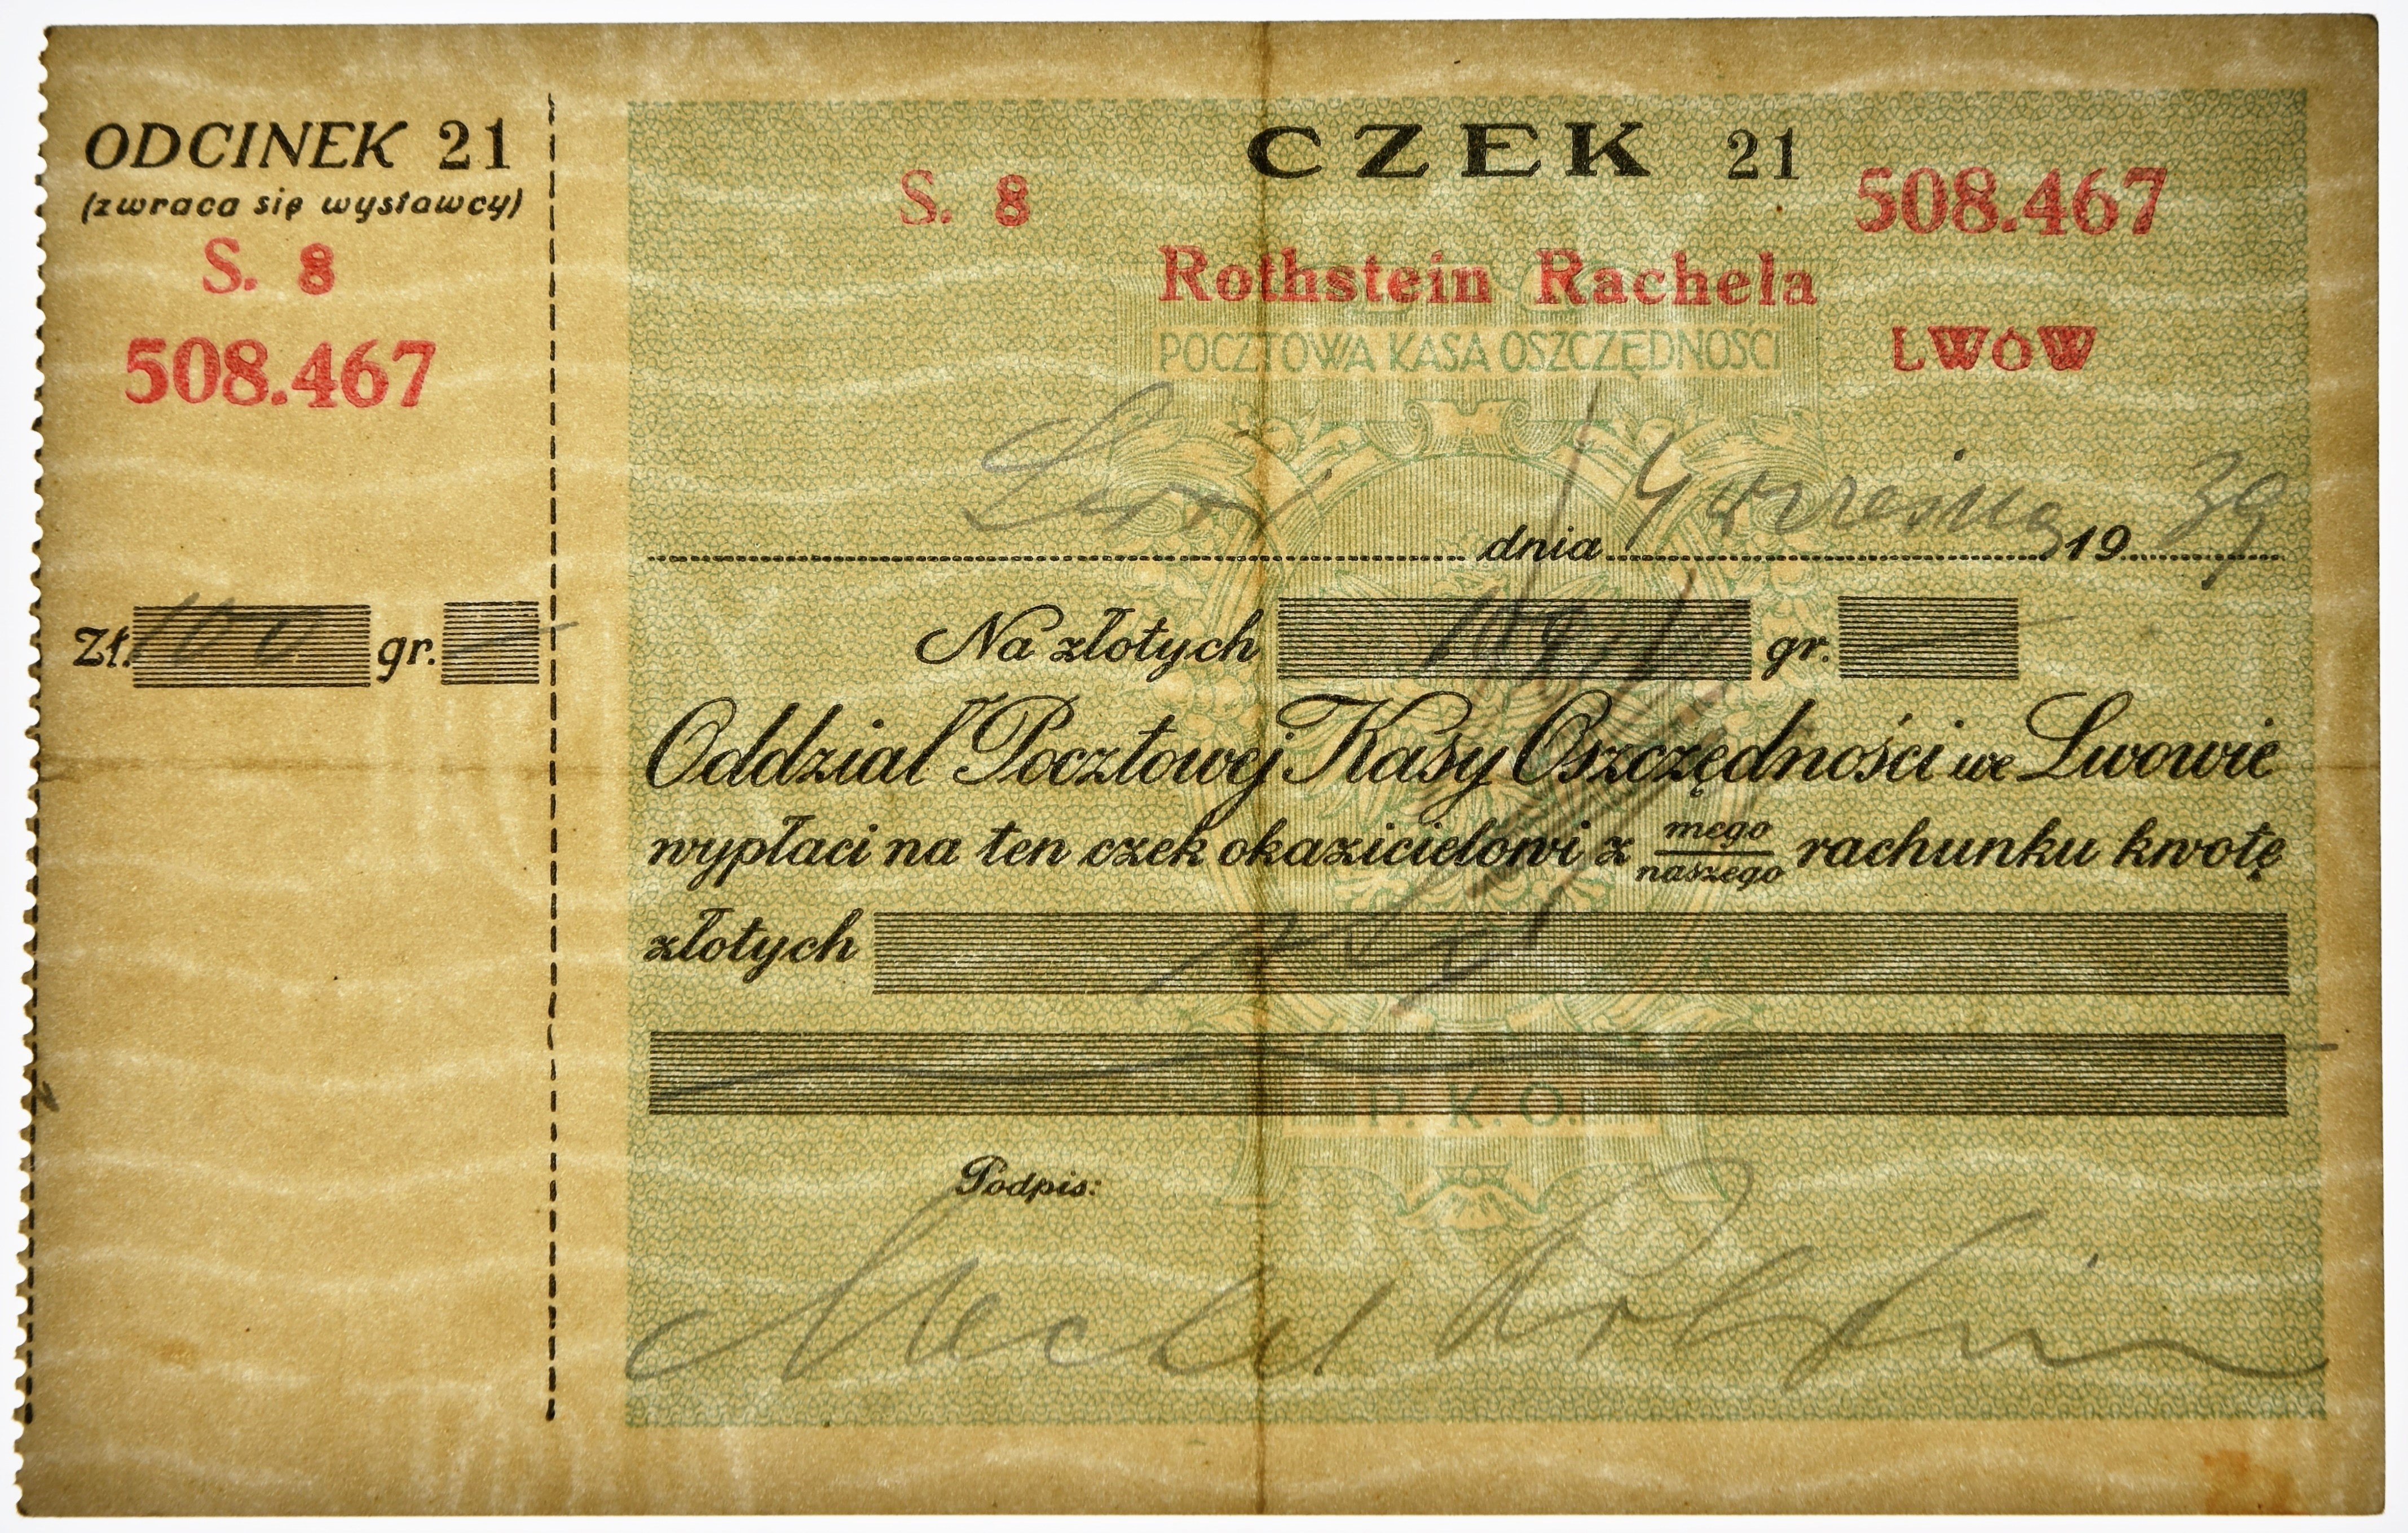 ODCINEK 21
(zwraca się wystawcy)
S. 8
508.467
Zł. 100 gr. —
CZEK 21
S. 8
508.467
Rothstein Rachela
POCZTOWA KASA OSZCZĘDNOŚCI
LWÓW
Lwów dnia 4 września 1939
Na złotych 100 gr. —
Oddział Pocztowej Kasy Oszczędności we Lwowie
wypłaci na ten czek okazicielowi z mego/naszego rachunku kwotę
złotych
P. K. O.
Podpis: